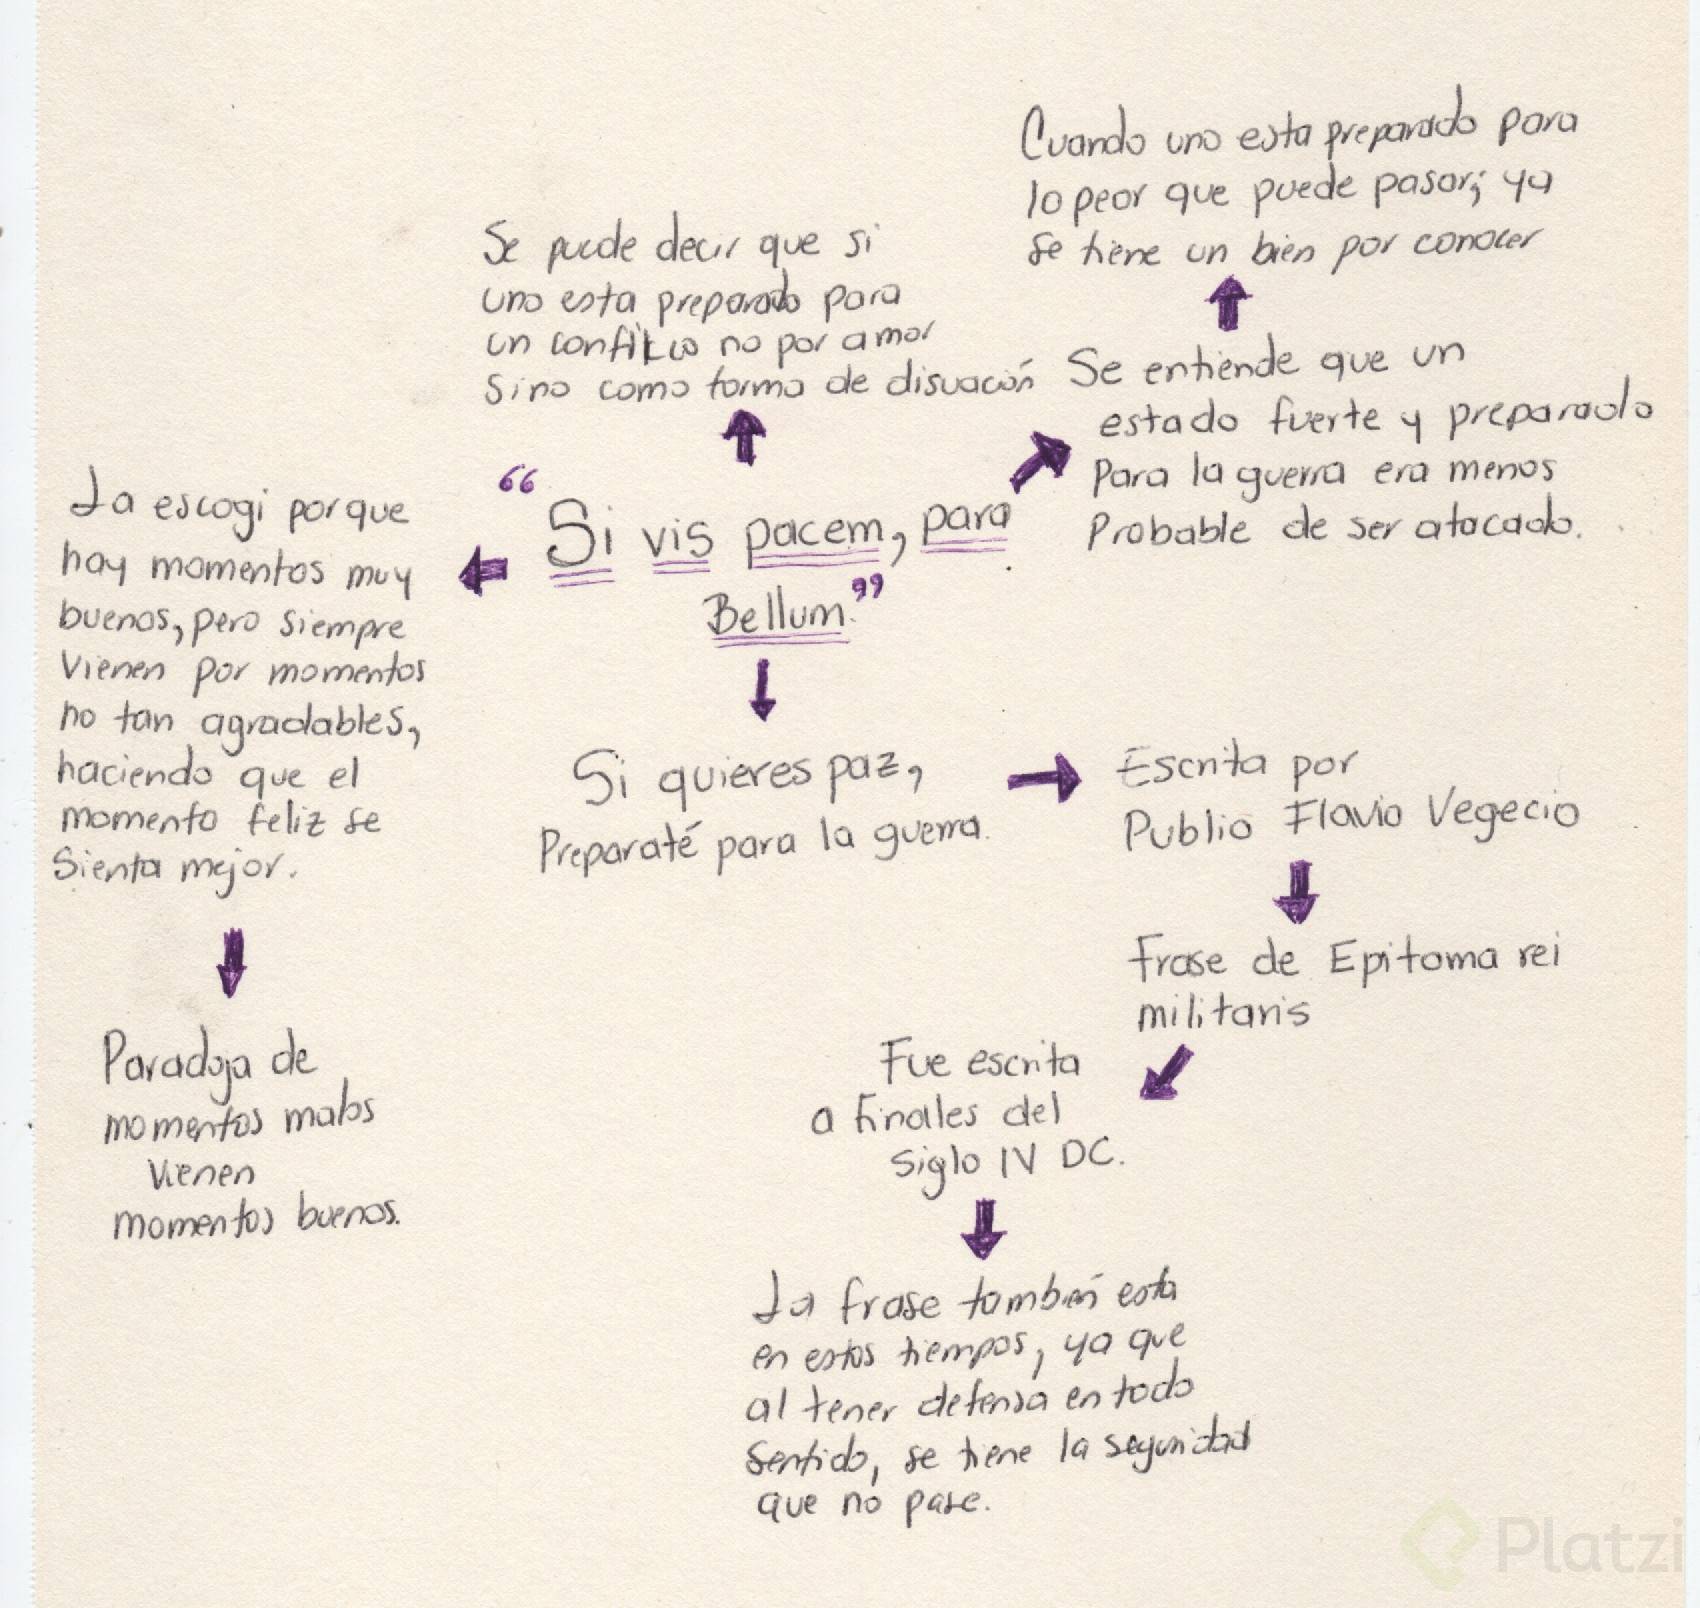 Cuando uno esta preparado para
lo peor que puede pasar; ya
se tiene un bien por conocer
Se puede decir que si
uno esta preparado para
un conflicto no por amor
Sino como forma de disuación
Se entiende que un
estado fuerte y preparado
Para la guerra era menos
Probable de ser atacado.
La escogi porque
hay momentos muy
buenos, pero siempre
vienen por momentos
no tan agradables,
haciendo que el
momento feliz se
Sienta mejor.
Paradoja de
momentos malos
vienen
momentos buenos.
“Si vis pacem, para
Bellum.”
Si quieres paz,
Preparaté para la guerra.
Escrita por
Publio Flavio Vegecio
Frase de Epitoma rei
militaris
Fue escrita
a finales del
siglo IV DC.
La frase también esta
en estos tiempos, ya que
al tener defensa en todo
Sentido, se tiene la seguridad
que no pase.
Platzi